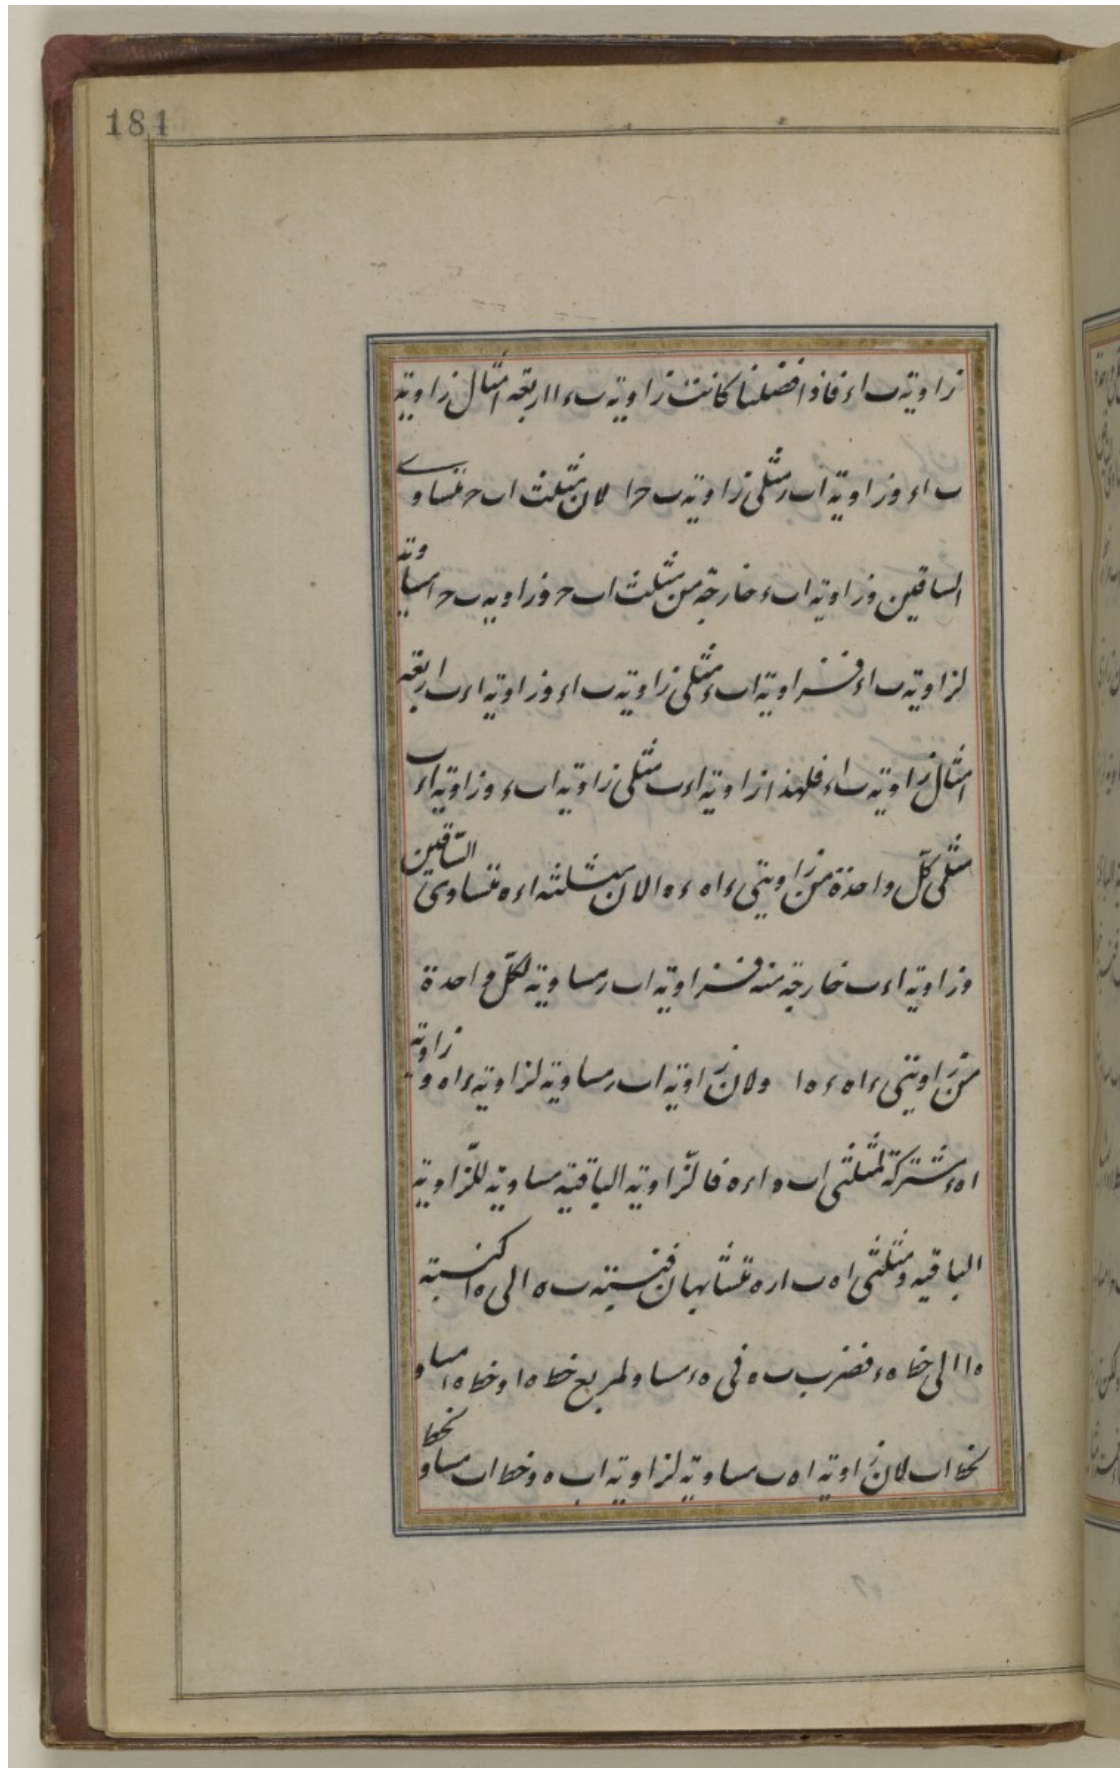 181
زاوية ب ا ء فاذا فضلنا كانت زاوية ب ء ا اربعه امثال زاوية
ب ا ء وزاوية ا ب ر مثلى زاوية ب ح ا لان مثلث ا ب ح متساوى
الساقين وزاوية ا ب ء خارجة من مثلث ا ب ح وزاوية ب ح ا مساوية
لزاوية ب ا ء فزاوية ا ب ء مثلى زاوية ب ا ء وزاوية ا ء ب اربعه
امثال زاوية ب ا ء فلهذا زاوية ا ء ب مثلى زاوية ا ب ء وزاوية ا ء ب
مثلى كل واحدة من زاويتى ء ا ه ء ه ا لان مثلثه ا ء ه متساوى الساقين
وزاوية ا ء ب خارجة منه فزاوية ا ب ر مساوية لكل واحدة
من زاويتى ء ا ه ء ه ا ولان زاوية ا ب ر مساوية لزاوية ء ا ه وزاوية
ا ه ء مشتركة لمثلثى ا ب ه ا ء ه فالزاوية الباقية مساوية للزاوية
الباقيه ومثلثى ا ه ب ا ر ه متشابهان فنسبته ب ه الى ه ا كنسبة
ه ا الى خط ه ء فضرب ب ه فى ه ء مساو لمربع خط ه ا وخط ه ا مساو
لخط ا ب لان زاوية ا ه ب مساوية لزاوية ا ب ه وخط ا ب مساو لخط